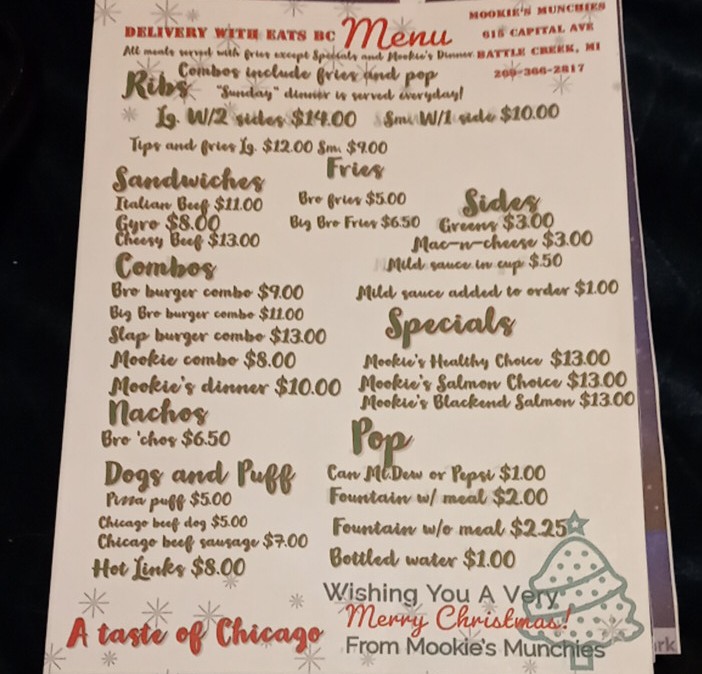 DELIVERY WITH EATS BC
Menu
MOOKIE'S MUNCHIES
615 CAPITAL AVE
BATTLE CREEK, MI
269-366-2817
All meals served with fries except Specials and Mookie's Dinner
Combos include fries and pop
Ribs
"Sunday" dinner is served everyday!
Lg. W/2 sides $14.00 Sm. W/1 side $10.00
Tips and fries Lg. $12.00 Sm. $9.00
Sandwiches
Italian Beef $11.00
Gyro $8.00
Cheesy Beef $13.00
Fries
Bro fries $5.00
Big Bro Fries $6.50
Sides
Greens $3.00
Mac-n-cheese $3.00
Mild sauce in cup $.50
Mild sauce added to order $1.00
Combos
Bro burger combo $9.00
Big Bro burger combo $11.00
Slap burger combo $13.00
Mookie combo $8.00
Mookie's dinner $10.00
Specials
Mookie's Healthy Choice $13.00
Mookie's Salmon Choice $13.00
Mookie's Blackend Salmon $13.00
Nachos
Bro 'chos $6.50
Pop
Can Mt.Dew or Pepsi $1.00
Fountain w/ meal $2.00
Fountain w/o meal $2.25
Bottled water $1.00
Dogs and Puff
Pizza puff $5.00
Chicago beef dog $5.00
Chicago beef sausage $7.00
Hot Links $8.00
A taste of Chicago
Wishing You A Very
Merry Christmas!
From Mookie's Munchies
rk